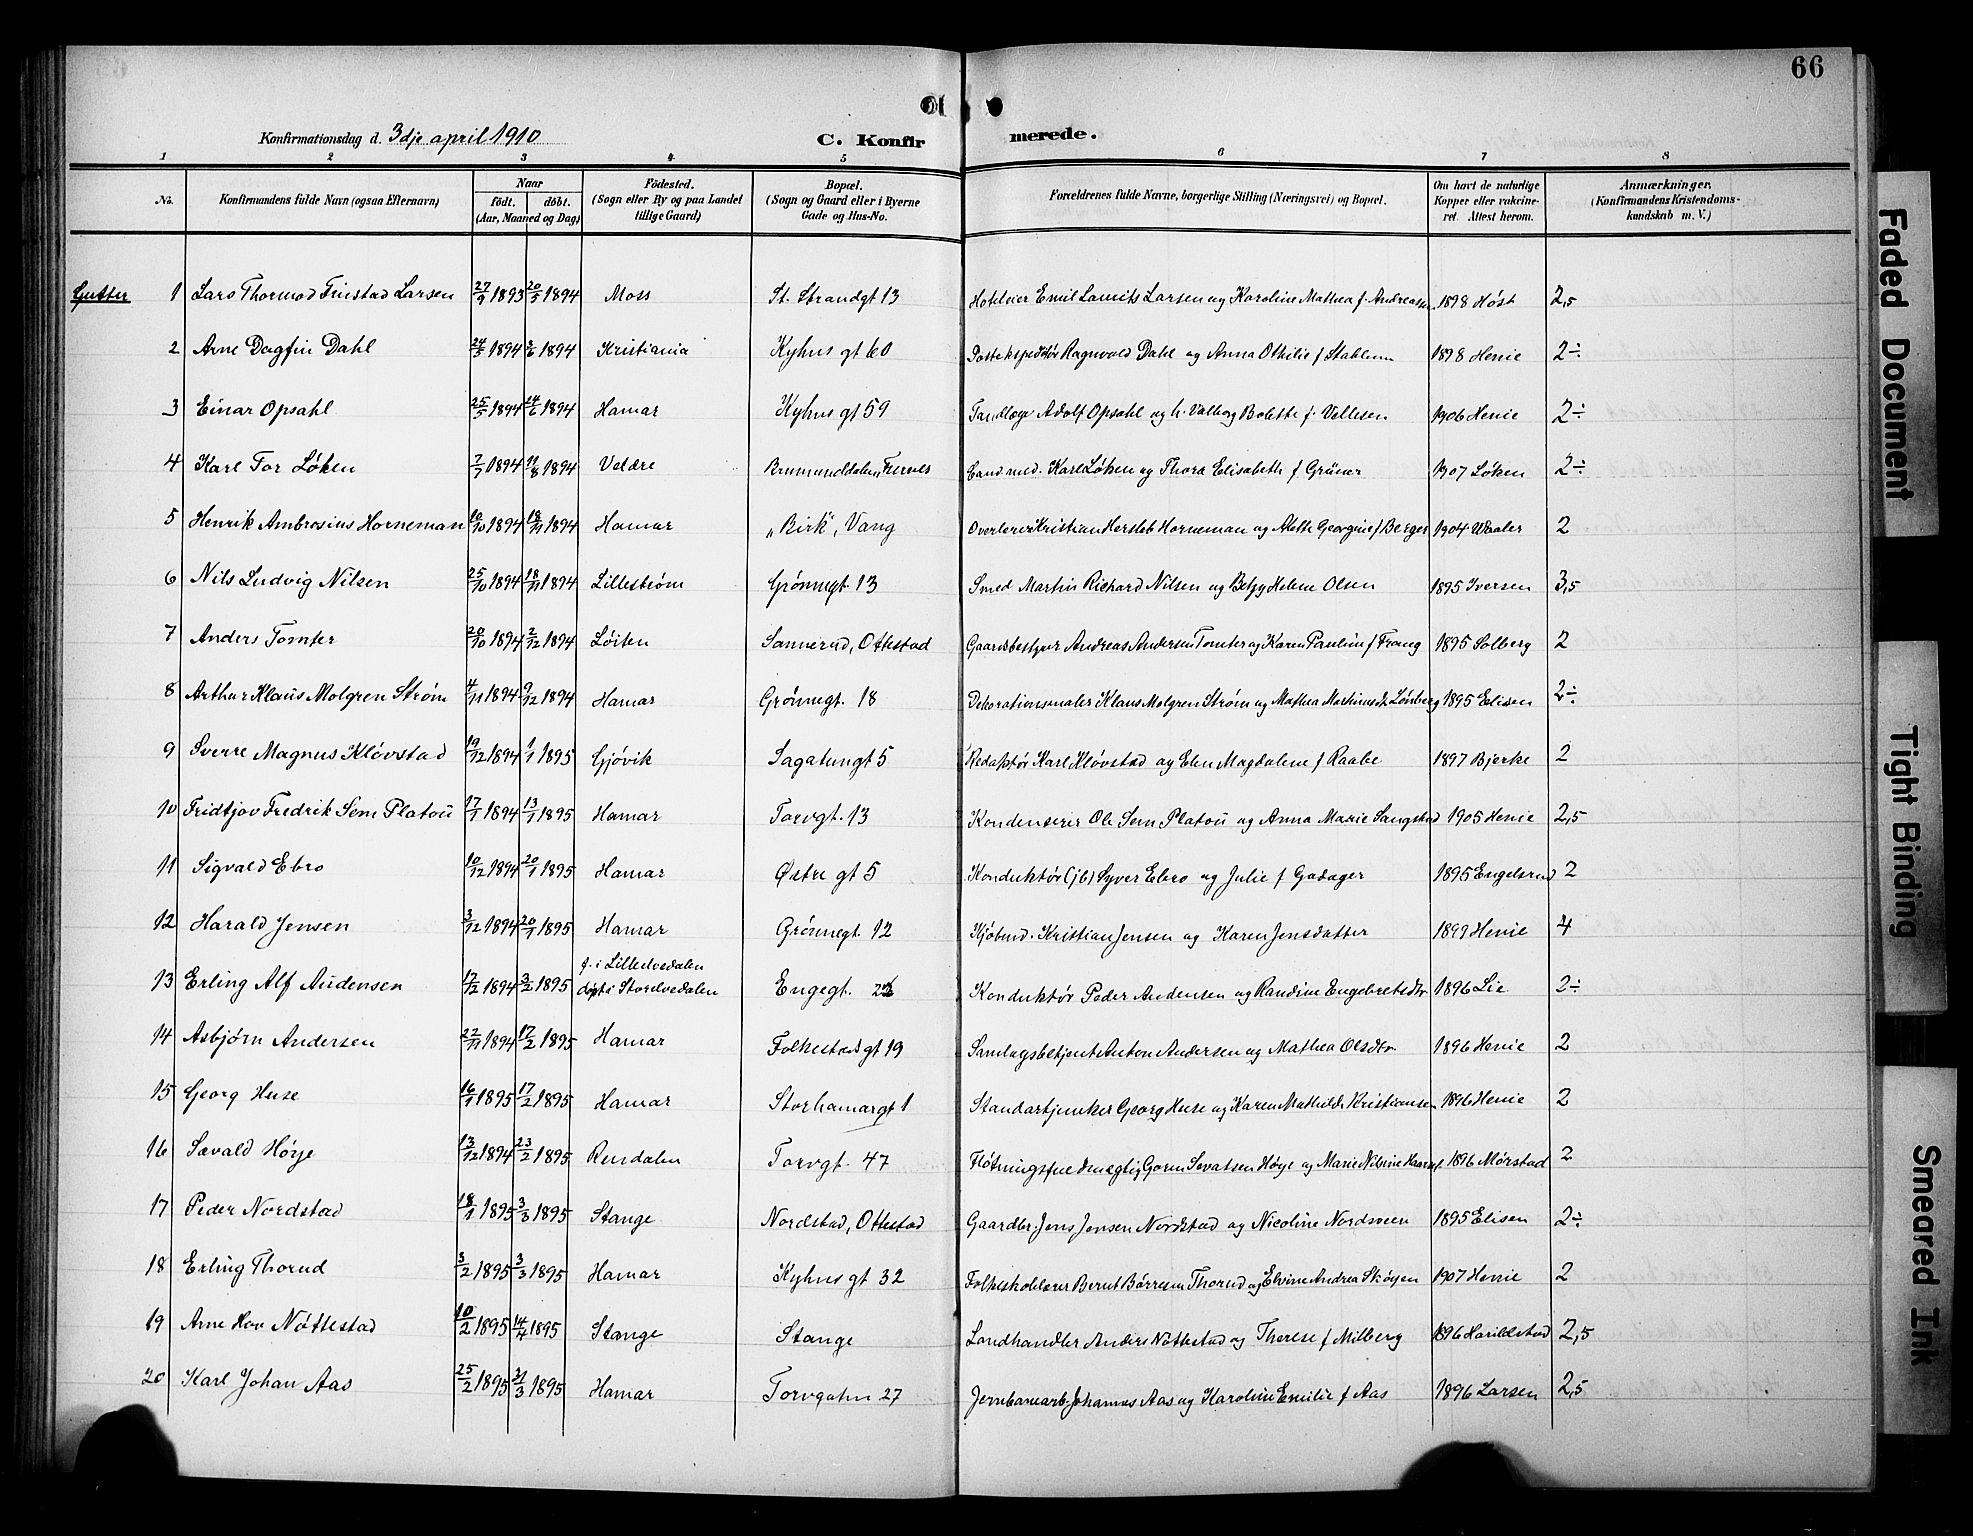 66
Konfirmationsdag d. 3dje april 1910 C. Konfirmerede.
1 2 3 4 5 6 7 8
No. Konfirmandens fulde Navn (ogsaa Efternavn) Naar født. døbt. (Aar, Maaned og Dag) Fødested. (Sogn eller By og paa Landet tillige Gaard) Bopæl. (Sogn og Gaard eller i Byerne Gade og Hus-No. Forældrenes fulde Navne, borgerlige Stilling (Næringsvei) og Bopæl. Om havt de naturlige Kopper eller vakcineret. Attest herom. Anmærkninger. (Konfirmandens Kristendomskundskab m. V.)
Gutter 1 Lars Thormod Finstad Larsen 27/9 1893 20/5 1894 Moss St. Strandgt 13 Hoteleier Emil Lauritz Larsen og Karoline Mathea f. Andreassen 1898 Høst 2,5
2 Arne Dagfin Dahl 24/5 1894 1894 Kristiania Kyhns gt 60 Postekspeditør Ragnvald Dahl og Anna Othilie f Stahlum 1898 Henie 2÷
3 Einar Opsahl 25/5 1894 24/6 1894 Hamar Kyhns gt 59 Tandlæge Adolf Opsahl og h. Valborg Bolette f. Vellesen 1906 Henie 2÷
4 Karl Tor Løken 7/7 1894 11/8 1894 Veldre Brumunddalen, Furnes Cand med. Karl Løken og Thora Elisabeth f Grüner 1907 Løken 2÷
5 Henrik Ambrosius Horneman 10/10 1894 18/11 1894 Hamar "Birk", Vang Overlærer Kristian Hersleb Horneman og Aleth Georgine f Berger 1904 Waaler 2
6 Nils Ludvig Nilsen 25/10 1894 18/11 1894 Lillestrøm Grønnegt 13 Smed Martin Richard Nilsen og Betzy Helene Olsen 1895 Iversen 3,5
7 Anders Tomter 20/10 1894 2/12 1894 Løiten Sannerud, Ottestad Gaardsbestyrer Andreas Andersen Tomter og Karen Pauline f Frang 1895 Solberg 2
8 Arthur Klaus Molgren Strøm 4/11 1894 9/12 1894 Hamar Grønnegt. 18 Dekorationsmaler Klaus Molgren Strøm og Mathea Martinusdt Lønberg 1895 Elisen 2÷
9 Sverre Magnus Kløvstad 19/12 1894 1/1 1895 Gjøvik Sagatungt 5 Redaktør Karl Kløvstad og Elen Magdalene f Raabe 1897 Bjerke 2
10 Fridtjov Fredrik Sem Platou 17/1 1894 13/1 1895 Hamar Torvgt. 13 Kondenserer Ole Sem Platou og Anna Marie Sangstad 1905 Henie 2,5
11 Sigvald Ebro 10/12 1894 20/1 1895 Hamar Østre gt 5 Konduktør (jb) Syver Ebro og Julie f Gadager 1895 Engelsrud 2
12 Harald Jensen 3/12 1894 20/1 1895 Hamar Grønnegt. 12 Kjøbmd. Kristian Jensen og Karen Jensdatter 1899 Henie 4
f. i Lilleelvedalen
13 Erling Alf Audensen 17/12 1894 3/2 1895 døpt i Storelvedalen Engegt. Konduktør Peder Audensen og Randine Engebretsdtr 1896 Lie 2÷
14 Asbjørn Andersen 22/11 1894 17/2 1895 Hamar Folkestadsgt 19 Samlagsbetjent Anton Andersen og Mathea Olsdtr. 1896 Henie 2
15 Georg Huse 16/1 1895 17/2 1895 Hamar Storhamargt 1 Standartjunker Georg Huse og Karen Mathilde Kristiansen 1896 Henie 2
16 Savald Høye 13/12 1894 23/2 1895 Rendalen Torvgt. 47 Fløtningsfuldmægtig Gorm Sevatsen Høye og Marie Nilsine 1896 Mørstad 2
17 Peder Nordstad 18/1 1895 3/3 1895 Stange Nordstad, Ottestad Gaardbr. Jens Jensen Nordstad og Nicoline Nordsveen 1895 Elisen 2÷
18 Erling Thorud 3/2 1895 3/3 1895 Hamar Kyhns gt 32 Folkeskolelærer Bernt Børresen Thorud og Elvine Andrea Skøyen 1907 Henie 2
19 Arne Hov Nøttestad 10/2 1895 14/4 1895 Stange Stange Landhandler Anders Nøttestad og Therese f Milberg 1896 Harildstad 2,5
20 Karl Johan Aas 25/2 1895 31/3 1895 Hamar Torvgaten 27 Jernbanearb. Johannes Aas og Karoline Emilie f Aas 1896 Larsen 2,5
Faded Document
Tight Binding
Smeared Ink